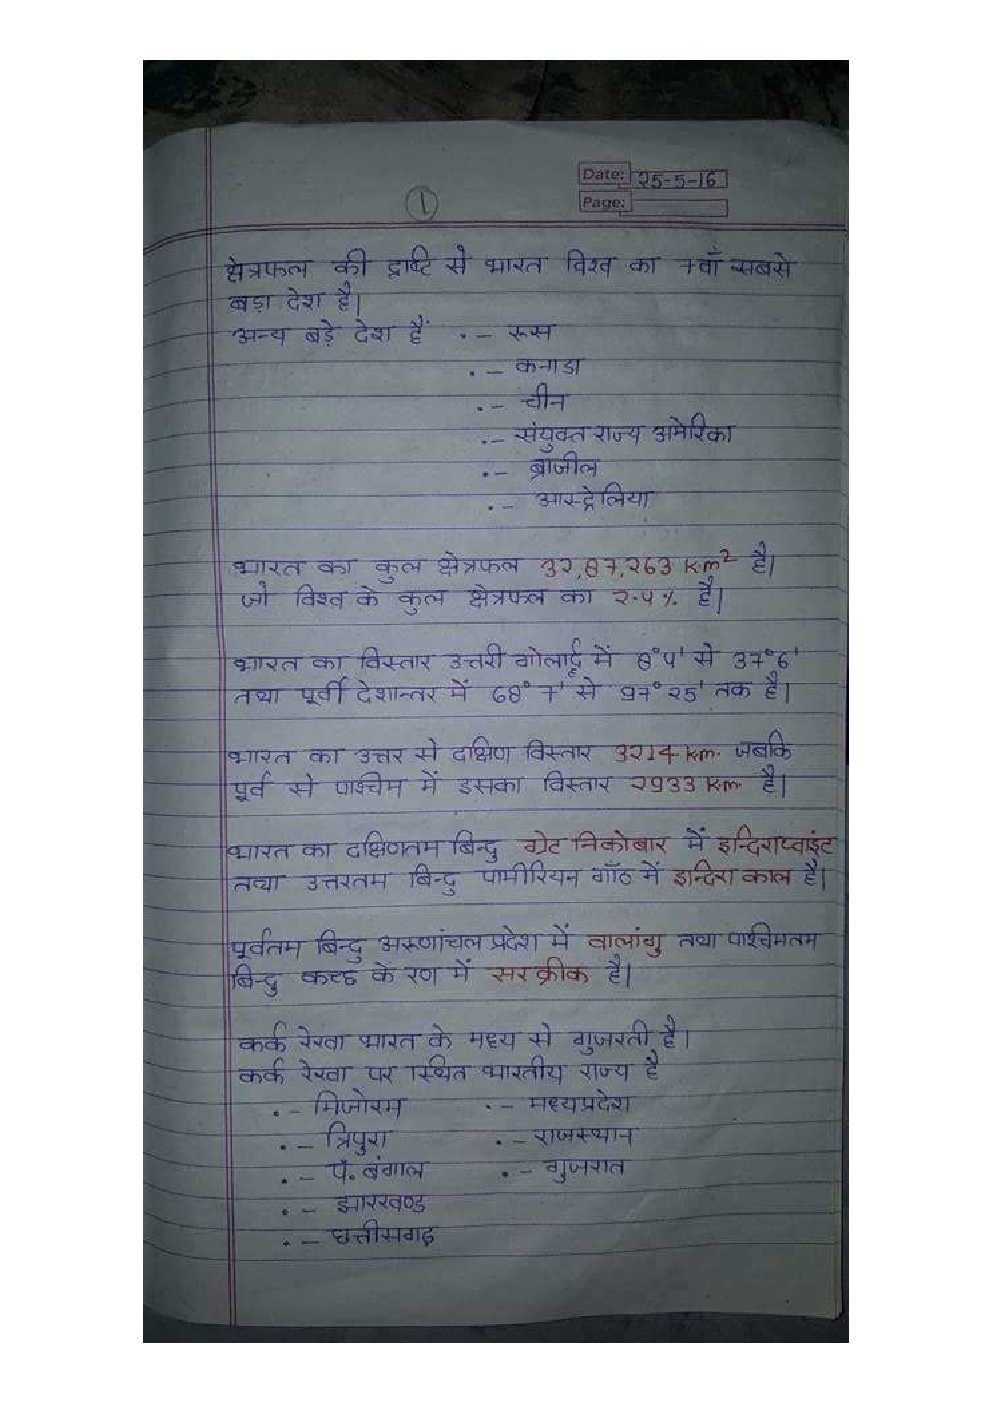 Date: 25-5-16
①
Page:
क्षेत्रफल की द्रष्टि से भारत विश्व का 7वाँ सबसे
बड़ा देश है।
अन्य बड़े देश हैं .- रूस
.- कनाडा
.- चीन
.- संयुक्त राज्य अमेरिका
.- ब्राजील
.- आस्ट्रेलिया
भारत का कुल क्षेत्रफल 32,87,263 Km² है।
जो विश्व के कुल क्षेत्रफल का 2.4% है।
भारत का विस्तार उत्तरी गोलार्द्ध में 8°4' से 37°6'
तथा पूर्वी देशान्तर में 68°7' से 97°25' तक है।
भारत का उत्तर से दक्षिण विस्तार 3214 Km. जबकि
पूर्व से पश्चिम में इसका विस्तार 2933 Km. है।
भारत का दक्षिणतम बिन्दु ग्रेट निकोबार में इन्दिराप्वाइंट
तथा उत्तरतम बिन्दु पामीरियन गाँठ में इन्दिरा काल है।
पूर्वतम बिन्दु अरूणांचल प्रदेश में वालांगु तथा पश्चिमतम
बिन्दु कच्छ के रण में सर क्रीक है।
कर्क रेखा भारत के मध्य से गुजरती है।
कर्क रेखा पर स्थित भारतीय राज्य है
.- मिजोरम .- मध्यप्रदेश
.- त्रिपुरा .- राजस्थान
.- पं. बंगाल .- गुजरात
.- झारखण्ड
.- छत्तीसगढ़